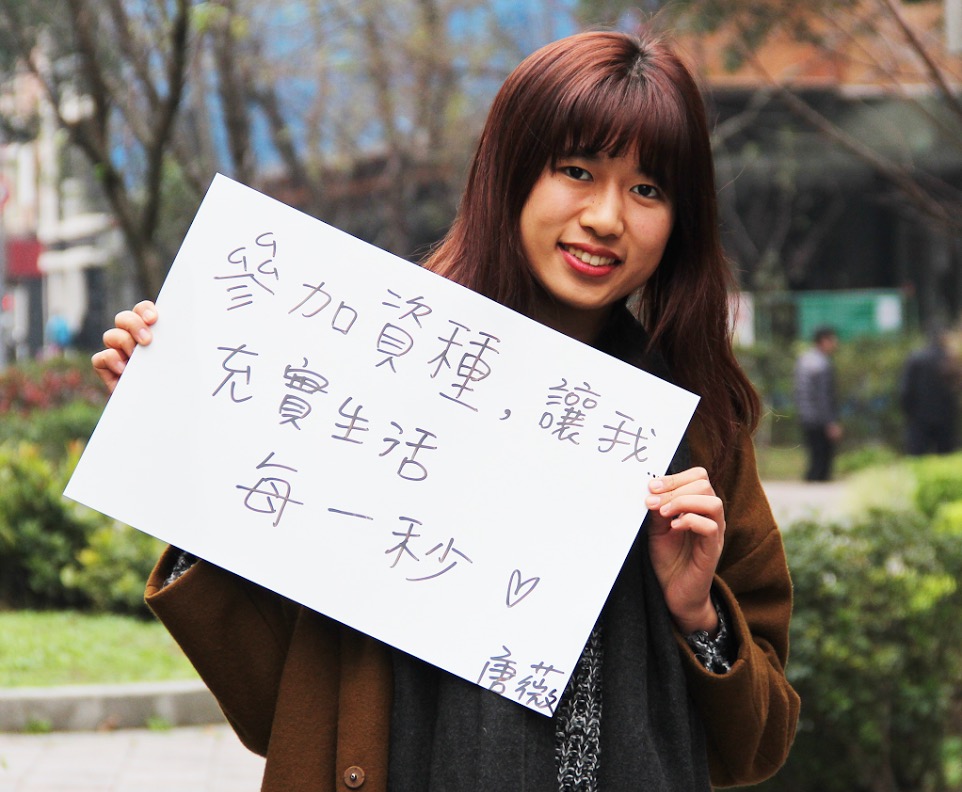 參加資種,讓我...
充實生活
每一秒♡
唐薇